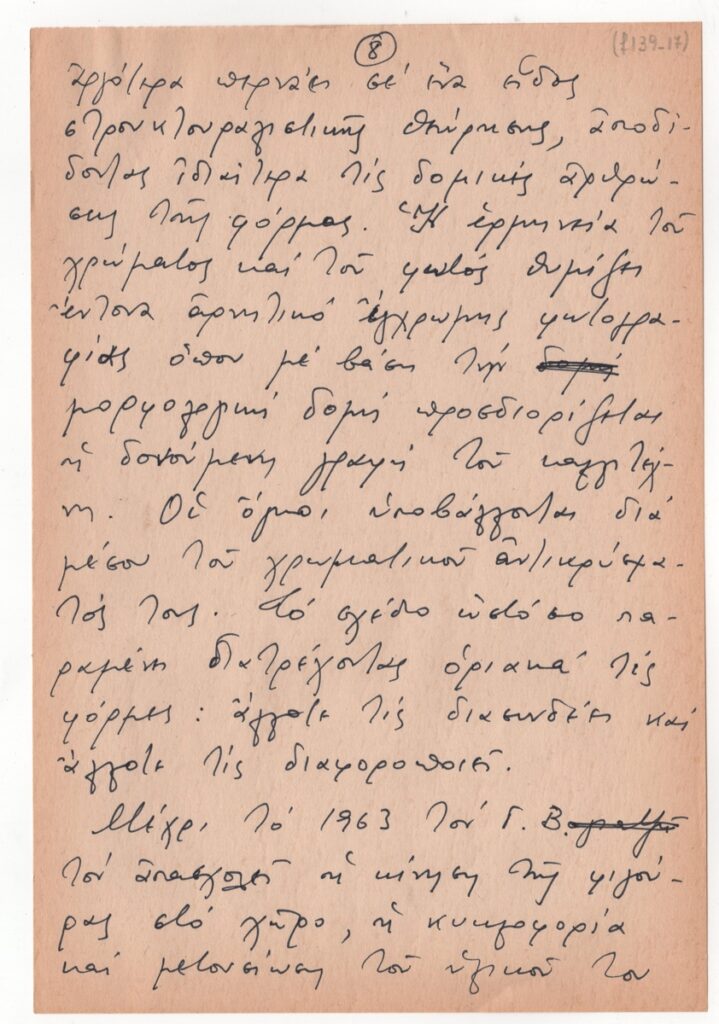 8
(f139-17)
ἀργότερα περνάει σέ ἕνα εἶδος
στρουκτουραλιστικῆς θεώρησης, ἀποδί-
δοντας ἰδιαίτερα τίς δομικές ἀρθρώ-
σεις τῆς φόρμας. Ἡ ἑρμηνεία τοῦ
χρώματος καί τοῦ φωτός θυμίζει
ἔντονα ἀρνητικό ἔγχρωμης φωτογρα-
φίας ὅπου μέ βάση τήν δομή
μορφολογική δομή προσδιορίζεται
ἡ δονούμενη γραφή τοῦ καλλιτέχ-
νη. Οἱ ὄγκοι ὑποβάλλονται διά
μέσου τοῦ χρωματικοῦ ἀντικρύσμα-
τός τους. Τό σχέδιο ὡστόσο πα-
ραμένει διατρέχοντας ὁριακά τίς
φόρμες: ἄλλοτε τίς διασυνδέει καί
ἄλλοτε τίς διαφοροποιεῖ.
Μέχρι τό 1963 τόν Γ. Β.
τόν ἀπασχολεῖ ἡ κίνηση τῆς φιγού-
ρας στό χῶρο, ἡ κυκλοφορία
καί μετουσίωση τοῦ ὑλικοῦ του